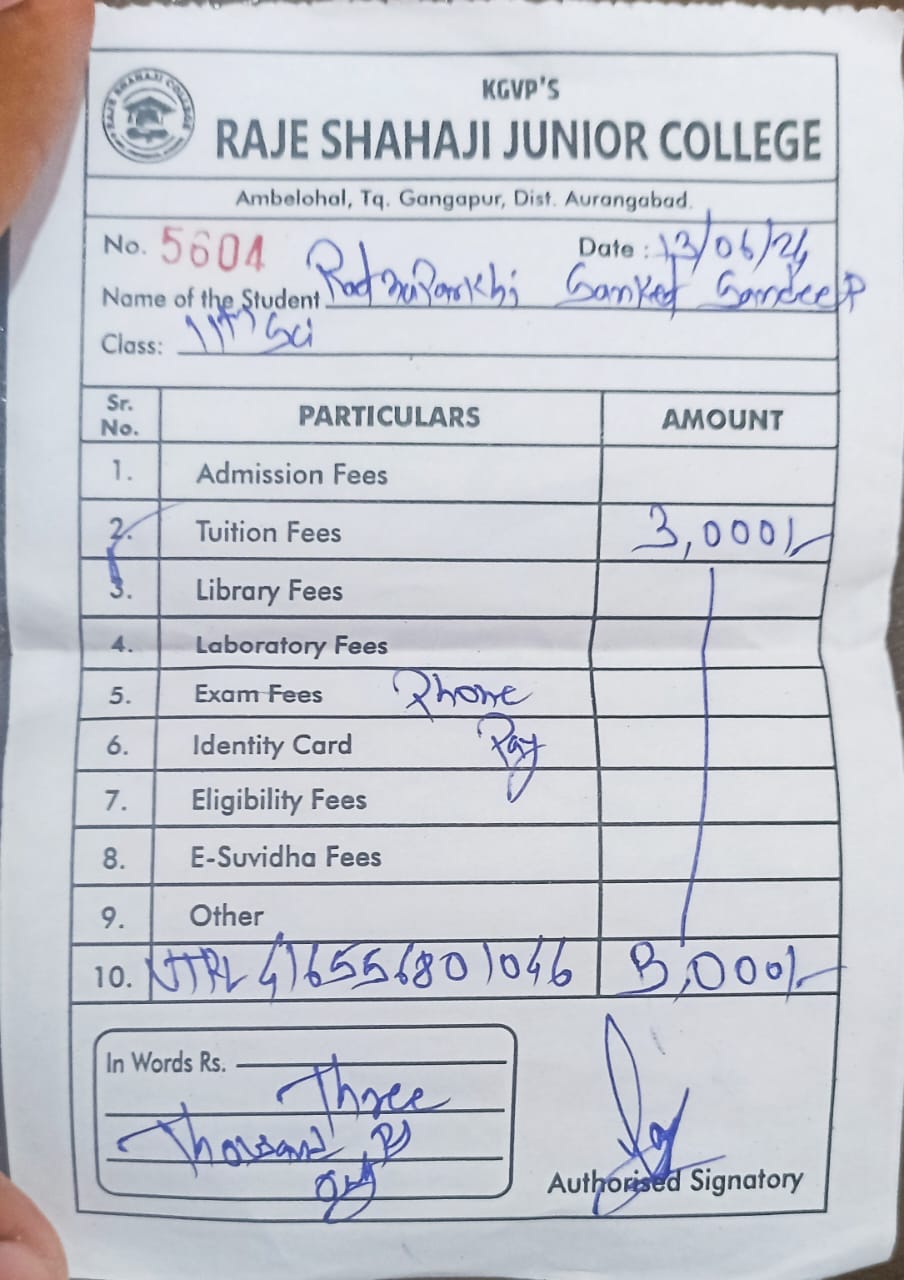 KGVP'S
RAJE SHAHAJI JUNIOR COLLEGE
Ambelohal, Tq. Gangapur, Dist. Aurangabad.
No. 5604 Date : 13/06/24
Name of the Student Sanket Sandeep
Class: 11th Sci
Sr. No. PARTICULARS AMOUNT
1. Admission Fees
2. Tuition Fees 3,000/-
3. Library Fees
4. Laboratory Fees
5. Exam Fees Phone
6. Identity Card Pay
7. Eligibility Fees
8. E-Suvidha Fees
9. Other
10. 416556801046 3,000/-
In Words Rs.
Three
Thousand Rs
only
Authorised Signatory